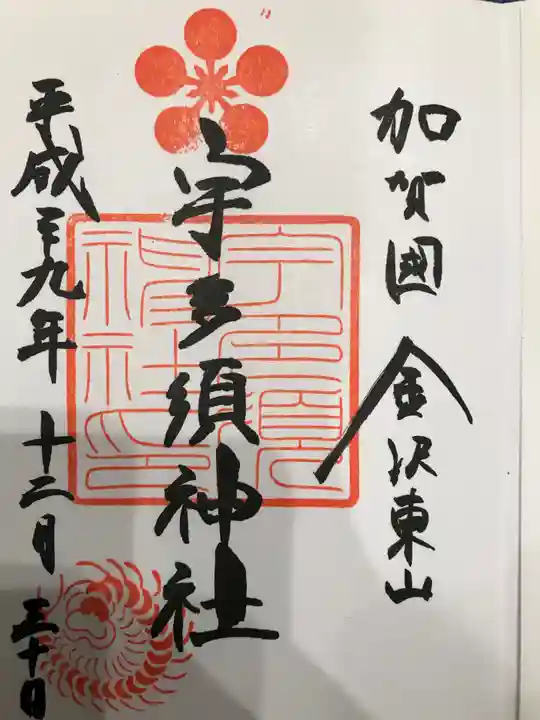 加賀國 金沢東山
宇多須神社
平成二十九年 十二月 三十日
宇多須神社印